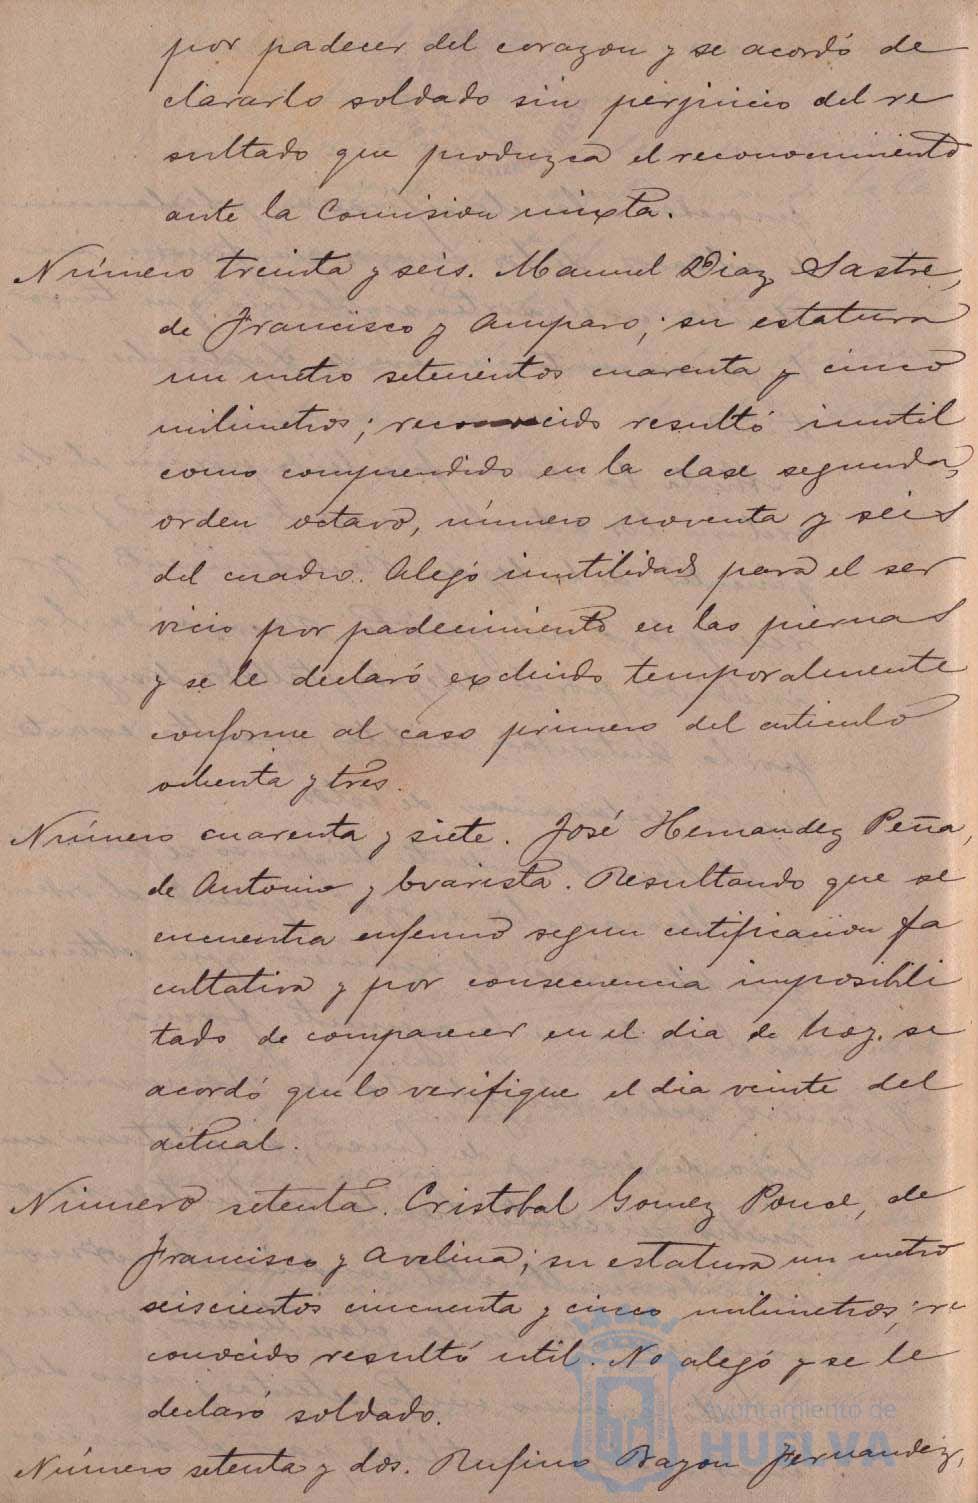 por padecer del corazon y se acordó de
clararlo soldado sin perjuicio del re
sultado que produzca el reconocimiento
ante la Comision mixta.
Número treinta y seis. Manuel Diaz Sastre,
de Francisco y Amparo; su estatura
un metro setecientos cuarenta y cinco
milimetros; reconocido resultó inutil
como comprendido en la clase segunda,
orden octavo, número noventa y seis
del cuadro. Alegó inutilidad para el ser
vicio por padecimiento en las piernas
y se le declaró excluido temporalmente
conforme al caso primero del articulo
ochenta y tres.
Número cuarenta y siete. José Hernandez Peña,
de Antonio y Evarista. Resultando que se
encuentra enfermo segun certificacion fa
cultativa y por consecuencia imposibili
tado de comparecer en el dia de hoy. se
acordó que lo verifique el dia veinte del
actual.
Número setenta. Cristobal Gomez Ponce, de
Francisco y Avelina; su estatura un metro
seiscientos cincuenta y cinco milimetros; re
conocido resultó util. No alegó y se le
declaró soldado.
Número setenta y dos. Rufino Bayon Fernandez,
Ayuntamiento de
HUELVA